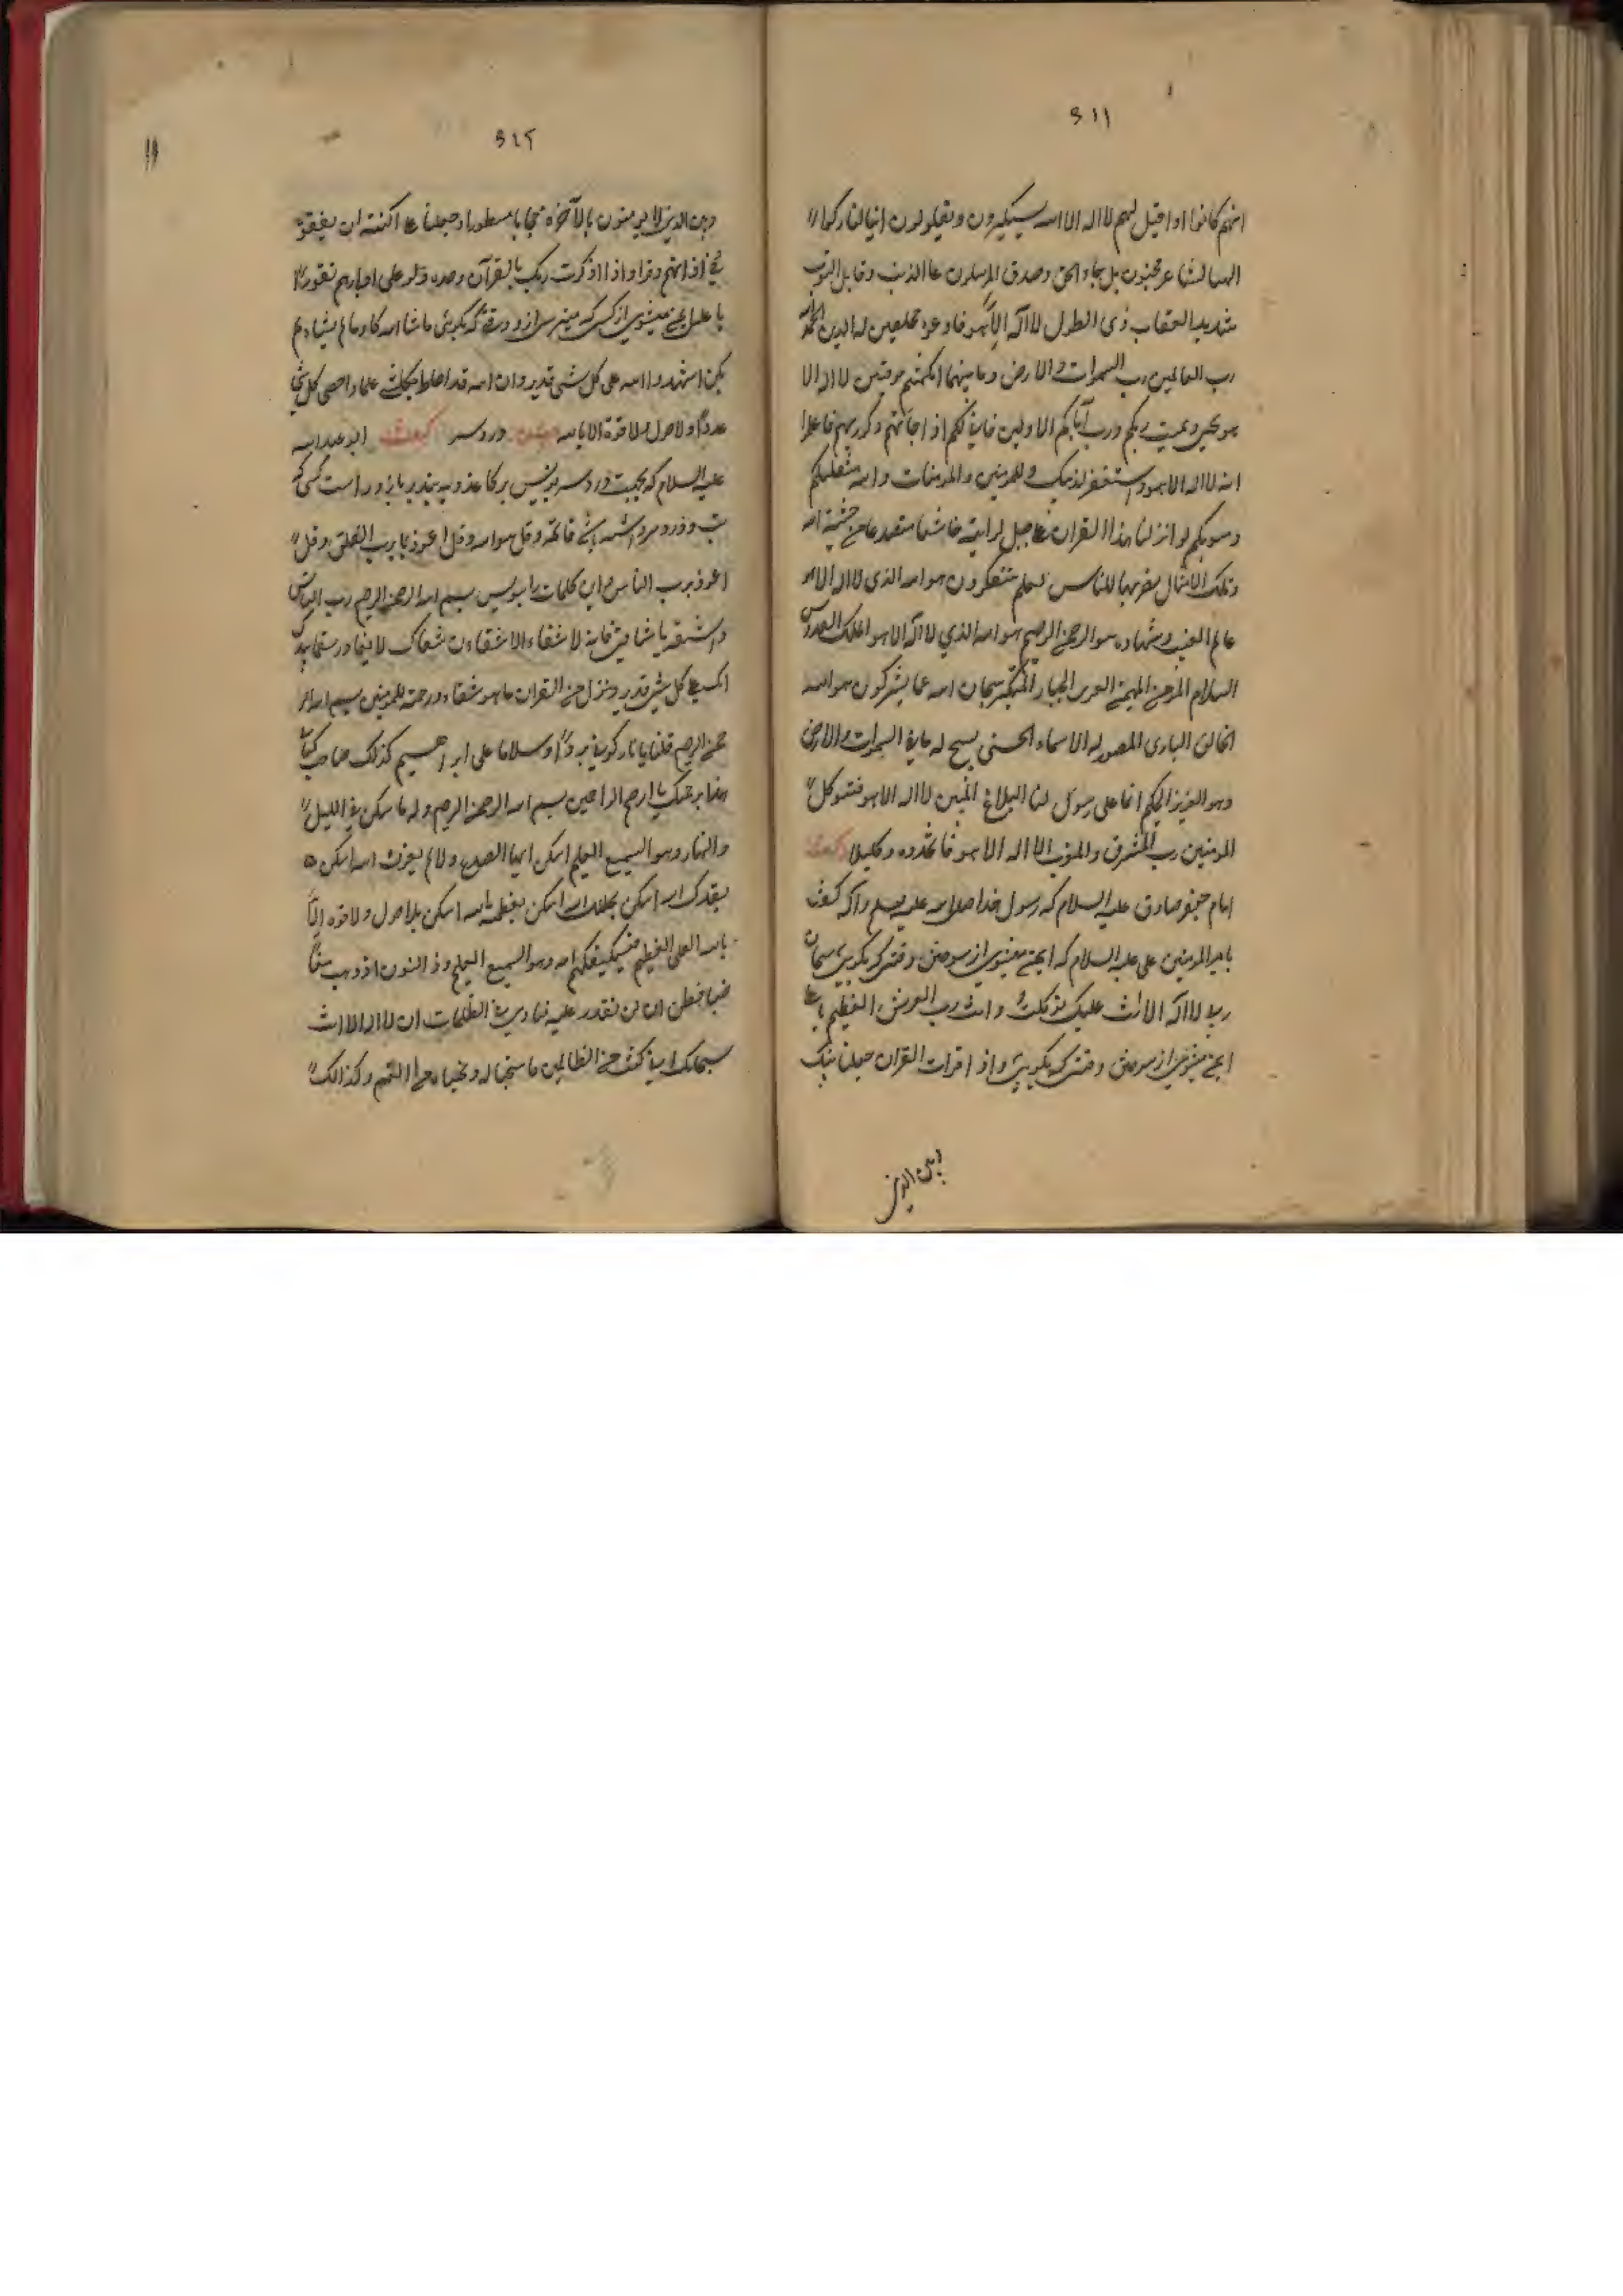 ٥١١
انهم كانوا اذا قيل لهم لا اله الا الله يستكبرون ويقولون انا لتاركوا
الهنا لشاعر مجنون بل جاء الحق وصدق المرسلون غا الذنب وقابل التوب
شديد العقاب ذى الطول لا اله الا هو فادعوه مخلصين له الدين الحمد لله
رب العالمين رب السموات والارض وما بينهما ان كنتم موقنين لا اله الا
هو يحيي ويميت ربكم ورب آبائكم الاولين فاذا جائتهم ذكريهم فاعلم
انه لا اله الا هو واستغفر لذنبك وللمؤمنين والمؤمنات والله متقلبكم
ومثويكم لو انزلنا هذا القران على جبل لرايته خاشعا متصدعا من خشية الله
وتلك الامثال نضربها للناس لعلهم يتفكرون هو الله الذى لا اله الا هو
عالم الغيب وشهاده هو الرحمن الرحيم هو الله الذي لا اله الا هو الملك القدوس
السلام المؤمن المهيمن العزيز الجبار المتكبر سبحان الله عما يشركون هو الله
الخالق البارى المصور له الاسماء الحسنى يسبح له ما في السموات والارض
وهو العزيز الحكيم انما على رسول لنا البلاغ المبين لا اله الا هو فتوكل
المؤمنين رب المشرق والمغرب لا اله الا هو فاتخذوه وكيلا
امام جعفر صادق عليه السلام كه رسول خدا صلى الله عليه وسلم وآله گفت
بامير المؤمنين على عليه السلام كه ايمن ميشوى از سوختن وقتى كه بگويى سبحان
ربى لا اله الا انت عليك توكلت وانت رب العرش العظيم يا على
ايمن ميشوى از وقتى كه بگويى واذا قرات القران جعلنا بينك
وبين الذين
٥١٢
وبين الذين لا يؤمنون بالآخرة حجابا مستورا وجعلنا على اكنته ان يفقهو
في اذانهم وقرا واذا ذكرت ربك بالقرآن وحده ولو على ادبارهم نفورا
يا على ايمن ميشوى از كسى كه وقتى كه بگوئى ما شاء الله كان وما لم يشاء لم
يكن اشهد و الله على كل شئى قدير وان الله قد احاط بكل شئ علما واحصى كل شئ
عددا ولا حول ولا قوة الا بالله درد سر گفت ابو عبد الله
عليه السلام كه بجهت درد سر بنويس بر كاغذ و به بندد بازو راست كسى كه
قائمة وقل هو الله وقل اعوذ برب الفلق وقل
اعوذ برب الناس اين كلمات را بنويس بسم الله الرحمن الرحيم رب الناس
واشفه يا شافى فانه لا شفاء الا شفاءك شفاك لا يغادر سقما بيدك
انك على كل شئ قدير وننزل من القران ما هو شفاء ورحمة للمؤمنين بسم الله الر
حمن الرحيم قلنا يا نار كونى بردا وسلاما على ابراهيم كذلك صاحب كتاب
هذا برحمتك يا ارحم الراحمين بسم الله الرحمن الرحيم وله ما سكن في الليل
والنهار وهو السميع العليم اسكن ايها الصداع والالم بعزت الله اسكن
بقدرت الله اسكن بجلال الله اسكن بعظمة الله اسكن بلا حول ولا قوة الا
بالله العلى العظيم فسيكفيكهم الله وهو السميع العليم وذ النون اذ ذهب مغا
ضبا فظن ان لن نقدر عليه فنادى في الظلمات ان لا اله الا انت
سبحانك انى كنت من الظالمين فاستجنا له ونجيناه من الغم وكذلك